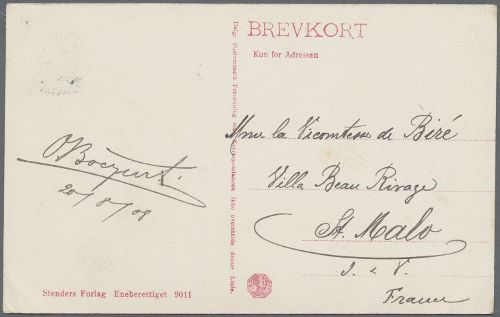 BREVKORT
Kun for Adressen
Mme la Vicomtesse de Biré
Villa Beau Rivage
St. Malo
I. & V.
France
20/8/08
Stenders Forlag Eneberettiget 9011